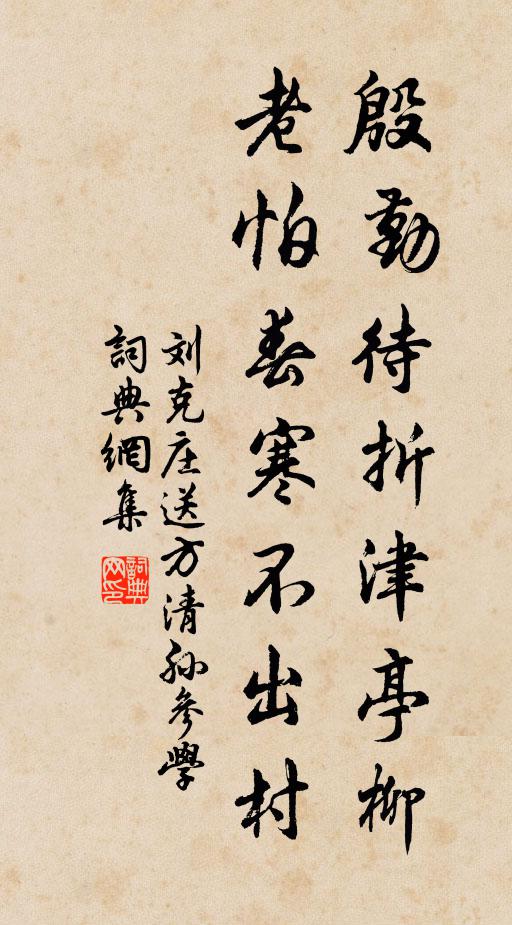 殷勤待折津亭柳
老怕春寒不出村
刘克庄送方清孙参學
詞典網集
詞典网印